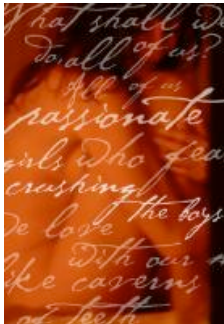 What shall w
do, all of us?
All of us
passionate
girls who fea
crushing
the boys
we love
with our m
like caverns
of teeth